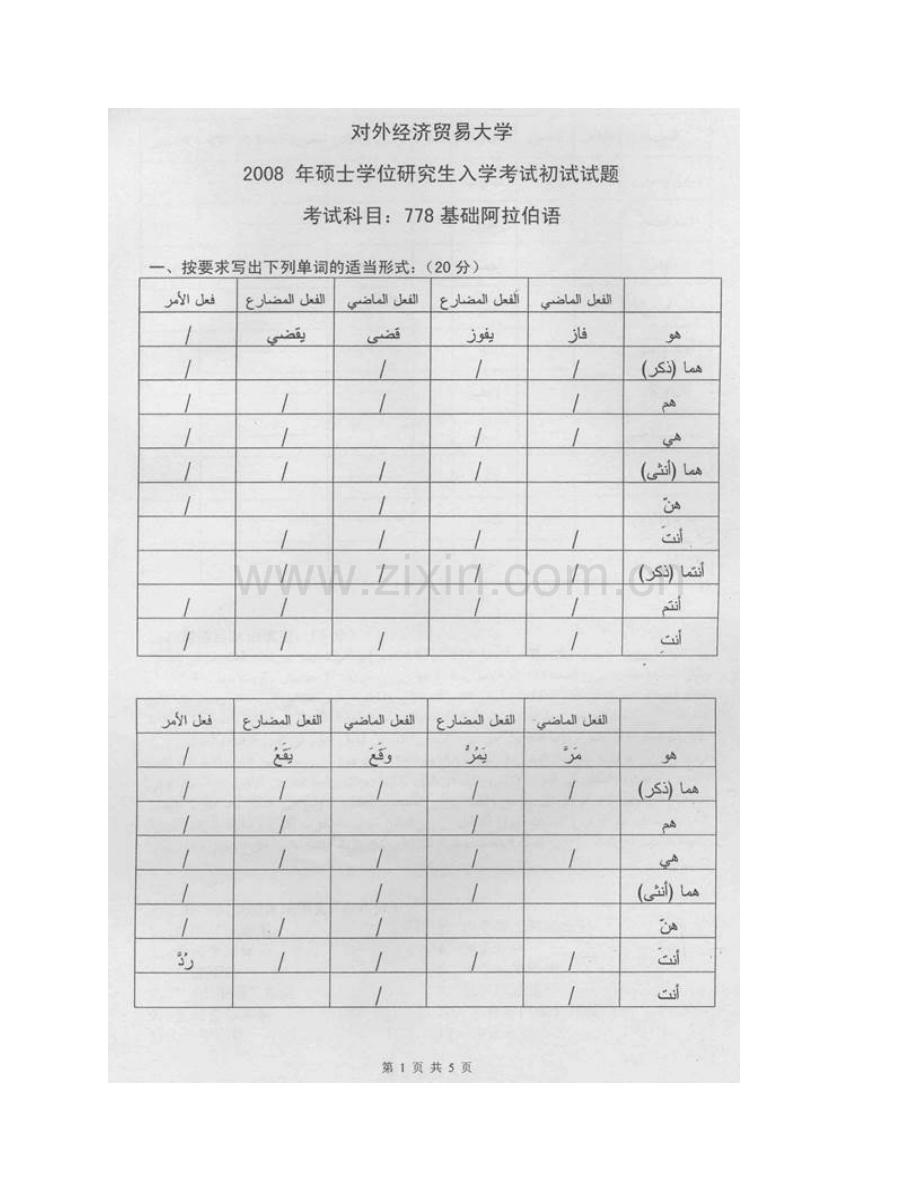 对外经济贸易大学
2008 年硕士学位研究生入学考试初试试题
考试科目：778 基础阿拉伯语
一、按要求写出下列单词的适当形式：（20 分）
الفعل الماضي الفعل المضارع الفعل الماضي الفعل المضارع فعل الأمر
هو فاز يفوز قضى يقضي /
هما (ذكر) / / / /
هم / / / /
هي / / / /
هما (أنثى) / / / /
هنّ / /
أنتَ / / / /
أنتما (ذكر) / / / /
أنتم / / / /
أنتِ / / / /
www.zixin.com.cn
الفعل الماضي الفعل المضارع الفعل الماضي الفعل المضارع فعل الأمر
هو مَرَّ يَمُرُّ وَقَعَ يَقَعُ /
هما (ذكر) / / / / /
هم / / /
هي / / / / /
هما (أنثى) / / /
هنّ / / /
أنتَ / / / / رُدَّ
أنت / /
第 1 页 共 5 页